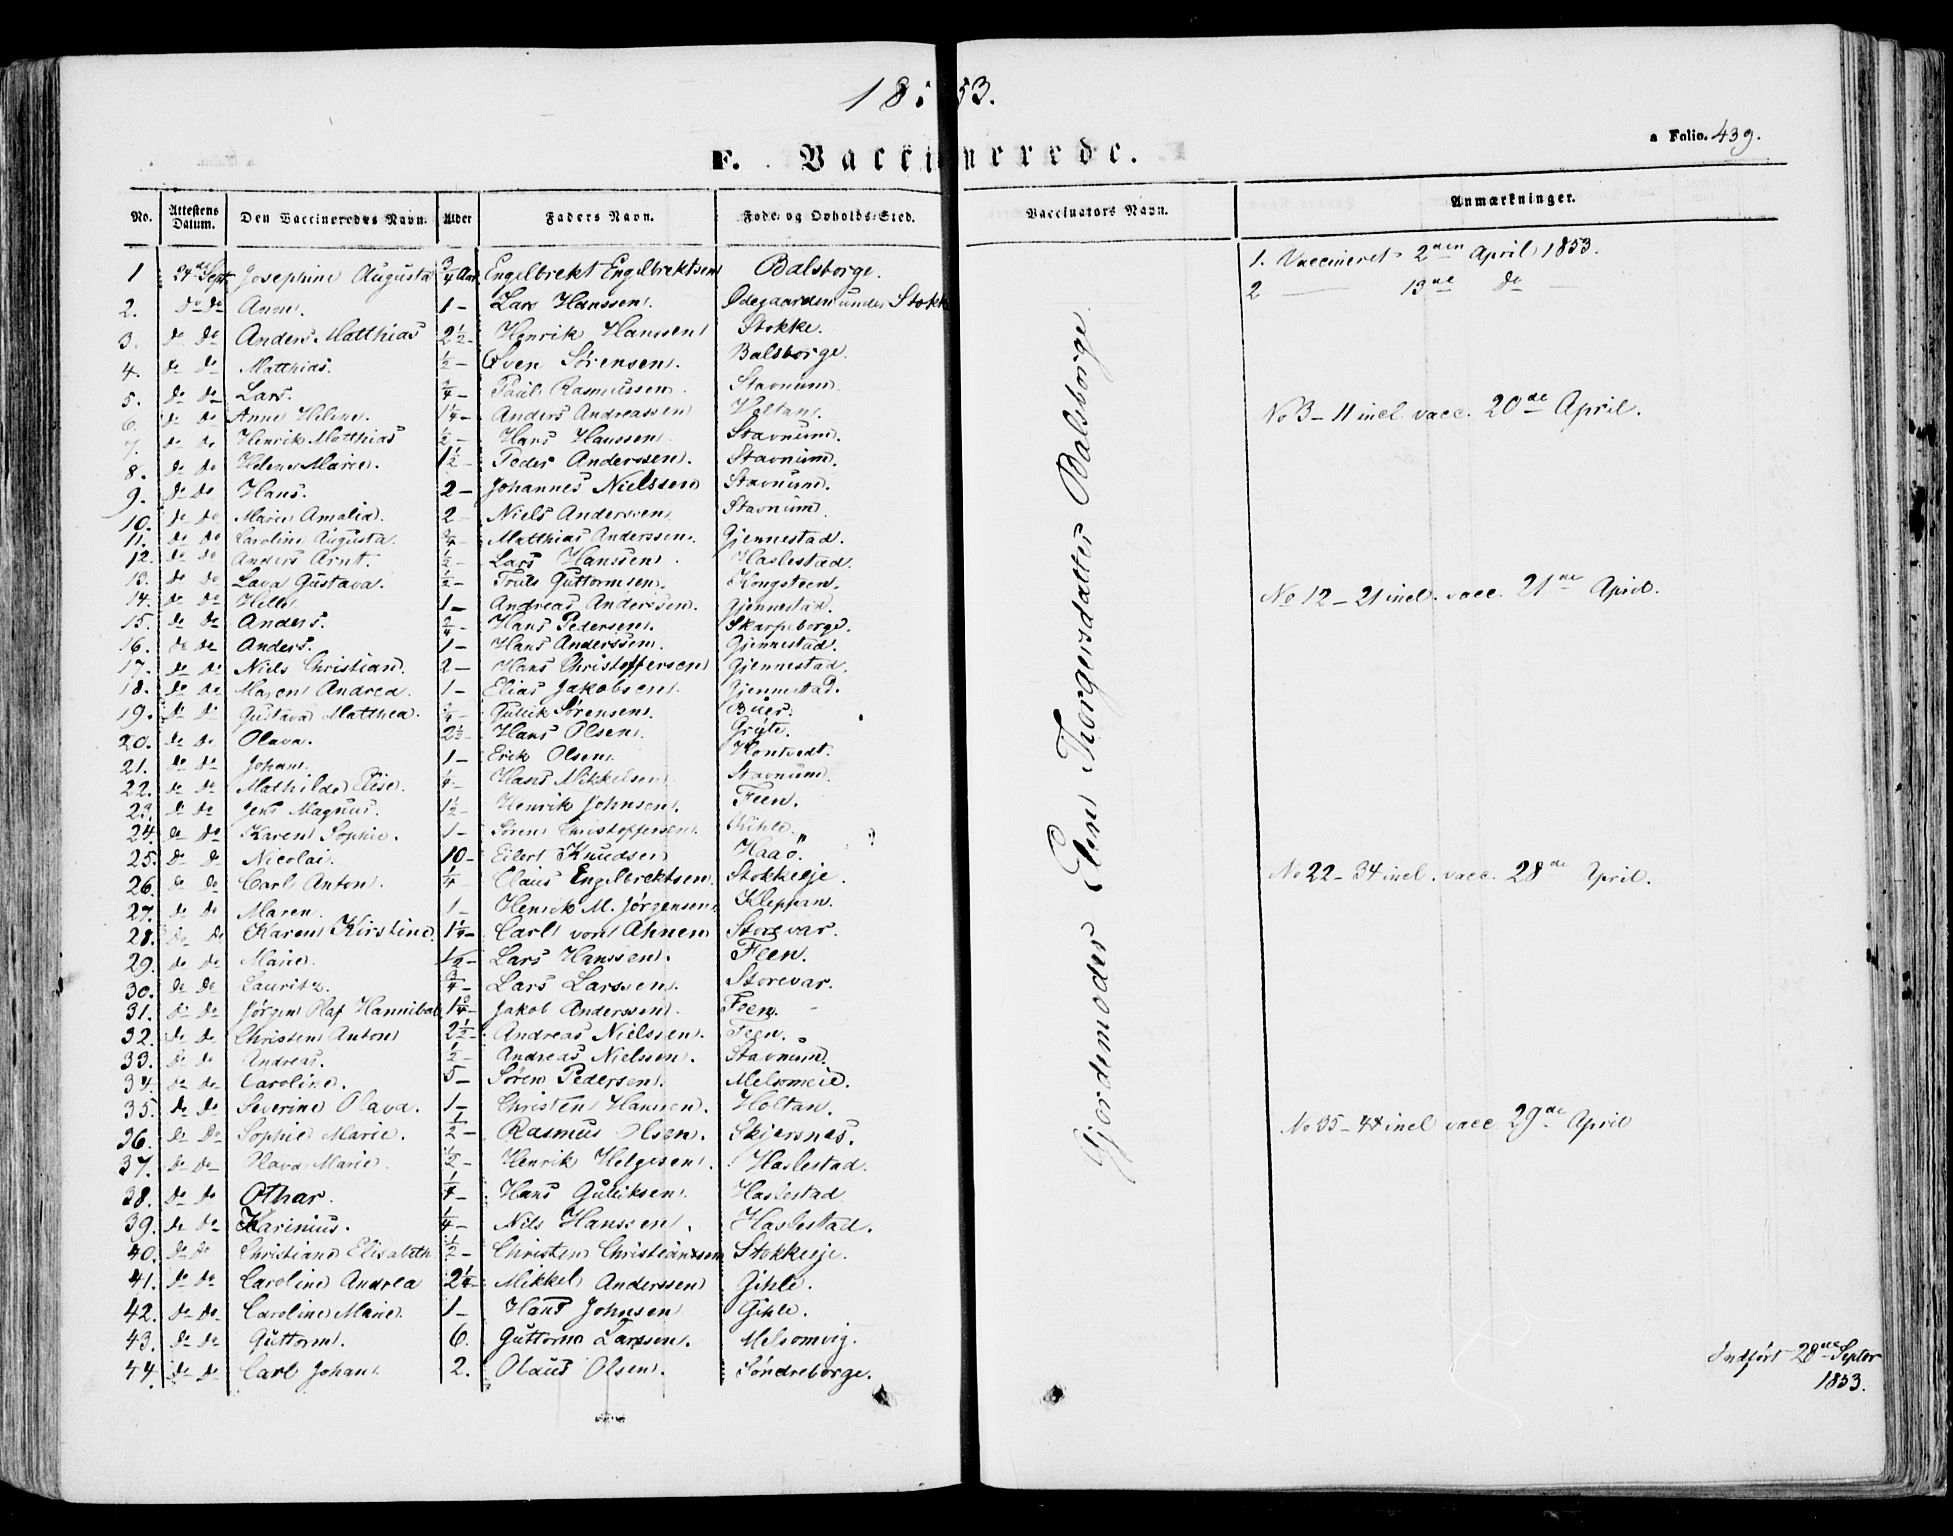 1853.
a Folio. 439.
F. Vaccinerede.
No. Attestens Datum. Den Vaccineredes Navn. Alder Faders Navn. Føde- og Opholds-Sted. Vaccinators Navn. Anmærkninger.
1 24de Sept. Josephine Augusta 3/4 Aar Engelbrekt Engelbrektsen Balsborge. 1. Vaccineret 2den April 1853.
2. do do Anne. 1 - Lars Hanssen. Ødegaarden under Stokke 2 — 19de do —
3. do do Anders Matthias 2 1/2 - Henrik Hanssen Stokke.
4. do do Matthias. 1/2 - Sven Sørensen. Balsborge.
5. do do Lars. 3/4 - Paul Rasmussen. Stavnum.
6. do do Anne Helene. 1 1/4 - Anders Andreassen Holtan. No 3 - 11 incl. vacc. 20de April.
7. do do Henrik Matthias 1/2 - Hans Hanssen Stavnum.
8. do do Helene Marie. 1 1/2 - Peder Anderssen. Stavnum.
9. do do Hans. 2 - Johannes Nielssen Stavnum.
10. do do Maren Amalia. 2 - Niels Anderssen Stavnum.
11. do do Caroline Augusta. 3/4 - Matthias Anderssen. Gjennestad.
12. do do Anders Arnt. 1/2 - Lars Hanssen. Haslestad.
13. do do Lava Gustava. 1/2 - Truls Guttormsen. Kongsteen.
14. do do Helle. 1 - Andreas Anderssen. Gjennestad. No 12 - 21 incl. vacc. 21de April.
15. do do Anders. 3/4 - Hans Pedersen. Skarpeborge.
16. do do Anders. 1 - Hans Anderssen. Gjennestad.
17. do do Niels Christian. 2 - Hans Christoffersen Gjennestad.
18. do do Maren Andrea. 1 - Elias Jakobsen. Gjennestad.
19. do do Gustava Matthea. Gullik Sørensen. Buer.
20. do do Olava. 2 1/2 - Hans Olsen. Gryte.
21. do do Johan. 1 - Erik Olsen. Hontvedt.
22. do do Mathilde Elise. Hans Mikkelsen Stavnum.
23. do do Jens Magnus. 1 1/2 - Henrik Johnsen. Feen.
24. do do Karen Sophie. 1 - Søren Christoffersen. Gihle.
25. do do Nicolai. 10 - Eilert Knudsen Haaø.
26. do do Carl Anton. 1/4 - Claus Engelbrektsen. Stokkeeje. No 22 - 34 incl. vacc. 28de April.
27. do do Maren 1 - Henrik M. Jørgensen. Kleppan.
28. do do Karen Kirstine. 1 1/4 - Carl von Ahnen Storevar.
29. do do Marie. 1/2 - Lars Hanssen. Feen.
30. do do Lauritz. 3/4 - Lars Larssen. Storevar.
31. do do Jørgen Olaf Hannibal 1 3/4 - Jakob Anderssen. Feen.
32. do do Christen Anton 2 1/2 - Andreas Nielssen. Feen.
33. do do Andreas. 1/2 - Andreas Nielssen. Stavnum.
34. do do Caroline. 5 - Søren Pedersen. Melsomeie.
35. do do Severine Olava. 1 - Christen Hanssen. Holtan.
36. do do Sophie Marie. 1/2 - Rasmus Olsen. Skjersnes. No 35 - 44 incl vacc 29de April
37. do do Olava Marie. 1/2 - Henrik Helgesen. Haslestad.
38. do do Othar. 1/4 - Hans Gulliksen. Haslestad
39. do do Karinius. 1/4 - Nils Hanssen. Haslestad.
40. do do Christiane Elisabeth 1/2 - Christen Christianssen Stokkeeje.
41. do do Caroline Andrea 2 1/4 - Mikkel Anderssen Gihle.
42. do do Caroline Marie. 1 - Hans Johnsen Gihle.
43. do do Guttorm. 6. Guttorm Larssen. Melsomvig.
44. do do Carl Johan. 2. Olaus Olsen. Søndreborge.
Gjordemoder Elen Thorgersdatter Balsborge.
Indført 28de Septbr
1853.